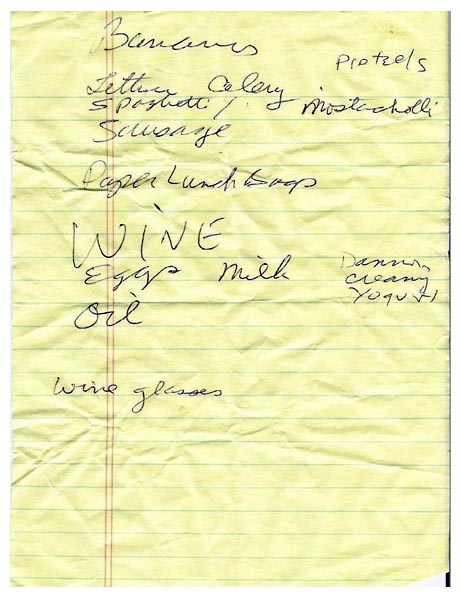 Bananas
Pretzels
Lettuce Celery
Spaghetti / Mostacholli
Sausage
Paper Lunch Bags
WINE
Eggs Milk
Dannon
Creamy
Yogurt
Oil
Wine glasses